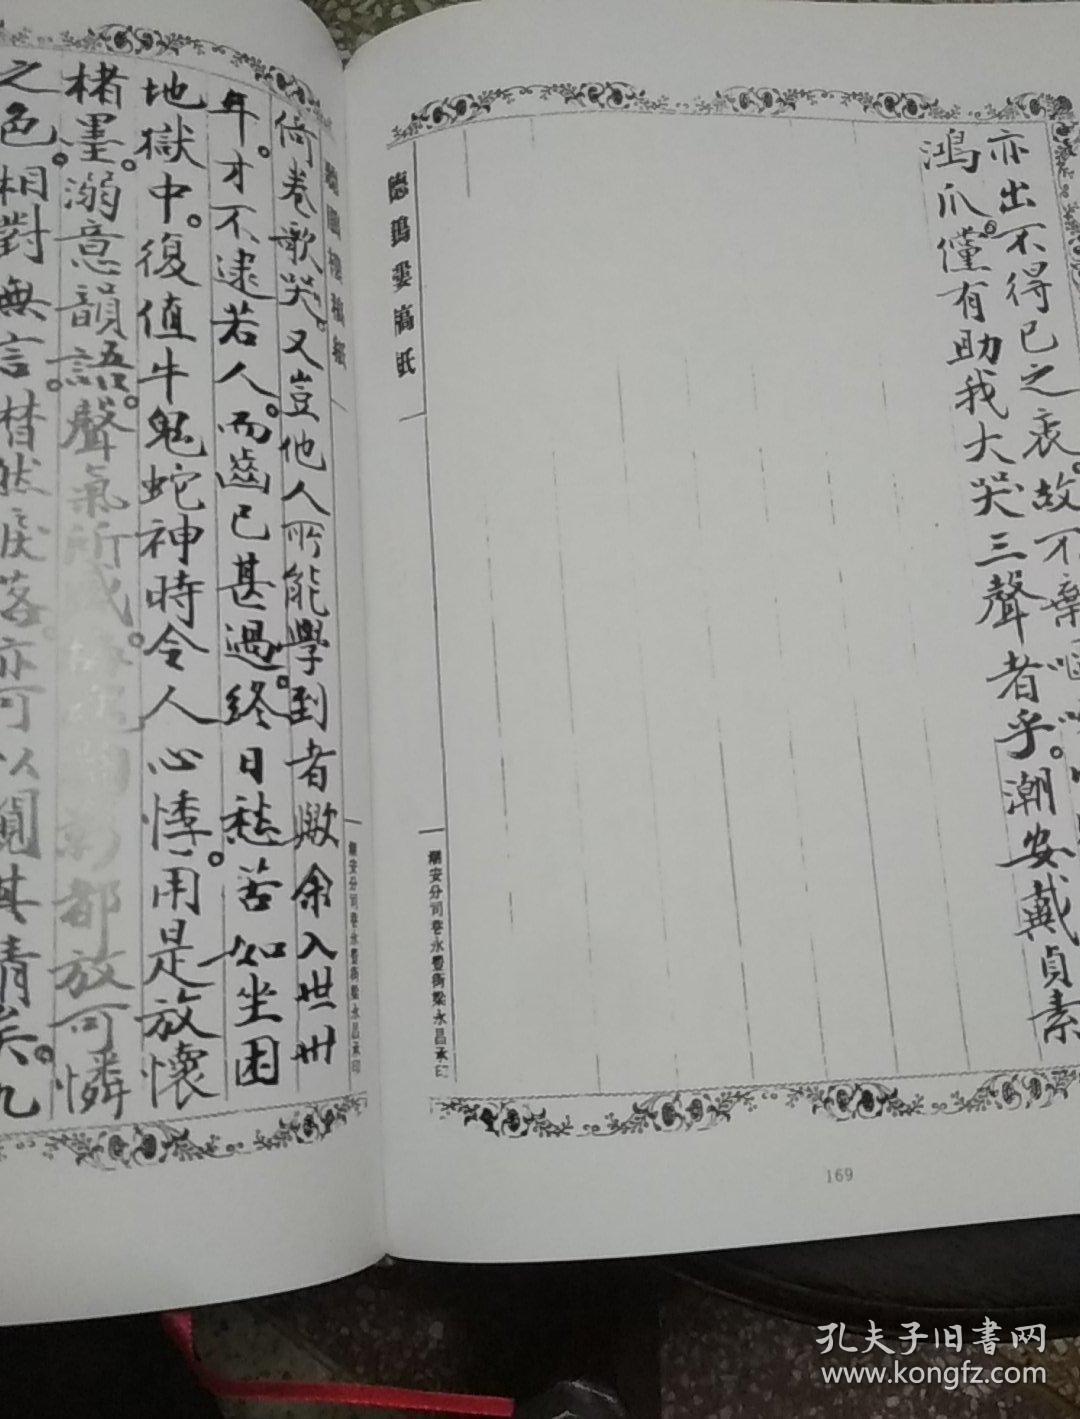 亦出不得已之衷。故不棄
鴻爪。僅有助我大哭三聲者乎。潮安戴貞素
稿紙
潮安分司巷永豐街梁永昌承印
169
倚卷歌哭。又豈他人所能學到者歟余入世卅
年。才不逮若人。而齒已甚過。終日愁苦如坐困
地獄中。復值牛鬼蛇神時令人心悸。用是放懷
楮墨。溺意韻語。聲氣所感。都放可憐
之色。相對無言。替然戾落。亦可以覘其情矣。九
潮安分司巷永豐街梁永昌承印
孔夫子旧書网
www.kongfz.com